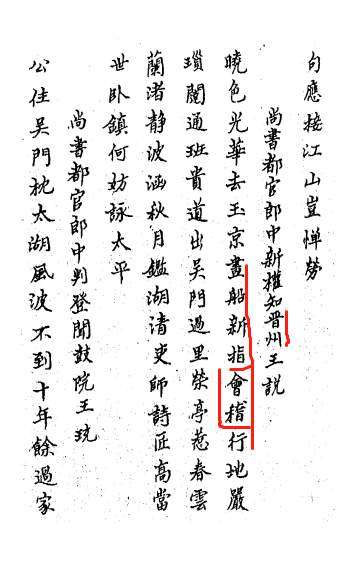 句應接江山豈憚勞
尚書都官郎中新權知晋州王説
曉色光華去玉京畫船新指會稽行地嚴
瑣闥通班貴道出吳門過里榮亭惹春雲
蘭渚静波涵秋月鑑湖清吏師詩匠高當
世卧鎮何妨詠太平
尚書都官郎中判登聞鼓院王珫
公住吳門枕太湖風波不到十年餘過家